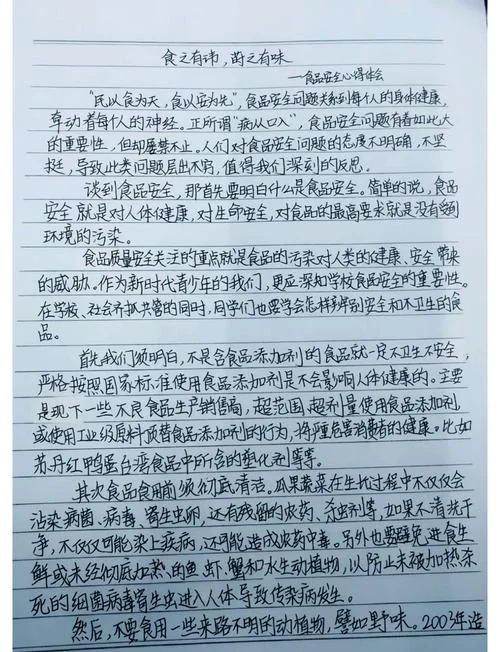 食之有讳，药之有味
——食品安全心得体会
“民以食为天，食以安为先”，食品安全问题关系到每个人的身体健康，
牵动着每个人的神经。正所谓“病从口入”，食品安全问题有着如此大
的重要性，但却屡禁不止。人们对食品安全问题的态度不明确，不坚
挺，导致此类问题层出不穷，值得我们深刻的反思。
谈到食品安全，那首先要明白什么是食品安全。简单的说，食品
安全就是对人体健康，对生命安全，对食品的最高要求就是没有受到
环境的污染。
食品质量安全关注的重点就是食品的污染对人类的健康、安全带来
的威胁。作为新时代青少年的我们，更应深知学校食品安全的重要性。
在学校、社会齐抓共管的同时，同学们也要学会怎样辨别安全和不卫生的食
品。
首先我们须明白，不是含食品添加剂的食品就一定不卫生不安全，
严格按照国家标准使用食品添加剂是不会影响人体健康的。主要
是现下一些不良食品生产销售商，超范围、超剂量使用食品添加剂，
或使用工业级原料顶替食品添加剂的行为，将严重危害消费者的健康。比如
苏丹红鸭蛋台湾食品中所含的塑化剂等等。
其次食品食用前须彻底清洁。瓜果蔬菜在生长过程中不仅仅会
沾染病菌、病毒、寄生虫卵，还有残留的农药、杀虫剂等，如果不清洗干
净，不仅仅可能染上疾病，还可能造成农药中毒。另外也要避免进食生
鲜或未经彻底加热的鱼虾、蟹和水生动植物，以防止未被加热杀
死的细菌病毒寄生虫进入人体导致传染病发生。
然后，不要食用一些来路不明的动植物，譬如野味。2003年造